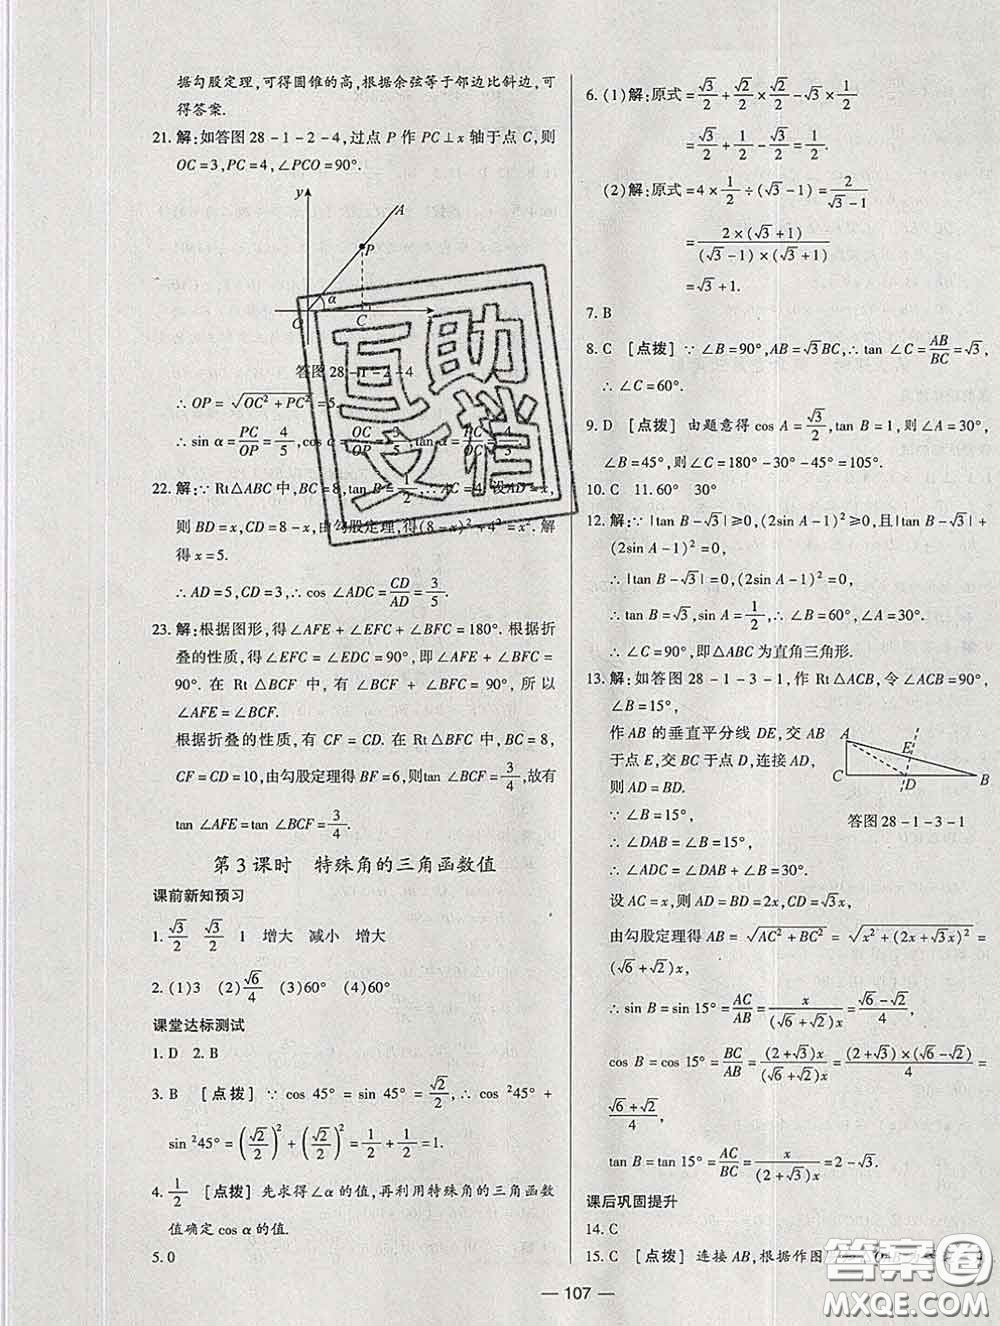 据勾股定理,可得圆锥的高,根据余弦等于邻边比斜边,可
得答案.
21. 解:如答图28-1-2-4,过点P作PC⊥x轴于点C,则
OC=3,PC=4,∠PCO=90°.
y
A
P
α
O
C
x
答图28-1-2-4
∴OP=√(OC²+PC²)=5.
∴sin α=PC/OP=4/5,cos α=OC/OP=3/5,tan α=PC/OC=4/3.
22. 解:∵Rt△ABC中,BC=8,tan B=1/2,∴AC=4.设AD=x,
则BD=x,CD=8-x,由勾股定理,得(8-x)²+4²=x².解
得x=5.
∴AD=5,CD=3,∴cos ∠ADC=CD/AD=3/5.
23. 解:根据图形,得∠AFE+∠EFC+∠BFC=180°.根据折
叠的性质,得∠EFC=∠EDC=90°,即∠AFE+∠BFC=
90°.在Rt△BCF中,有∠BCF+∠BFC=90°,所以
∠AFE=∠BCF.
根据折叠的性质,有CF=CD.在Rt△BFC中,BC=8,
CF=CD=10,由勾股定理得BF=6,则tan ∠BCF=3/4,故有
tan ∠AFE=tan ∠BCF=3/4.
第3课时 特殊角的三角函数值
课前新知预习
1. √3/2 √3/2 1 增大 减小 增大
2. (1)3 (2)√6/4 (3)60° (4)60°
课堂达标测试
1. D 2. B
3. B [点拨] ∵cos 45°=sin 45°=√2/2,∴cos ²45°+
sin ²45°=(√2/2)²+(√2/2)²=1/2+1/2=1.
4. 1/2 [点拨] 先求得∠α的值,再利用特殊角的三角函数
值确定cos α的值.
5. 0
6. (1)解:原式=√3/2+√2/2×√2/2-√3×1/2
=√3/2+1/2-√3/2
=1/2.
(2)解:原式=4×1/2÷(√3-1)=2/(√3-1)
=2×(√3+1)/(√3-1)×(√3+1)
=√3+1.
7. B
8. C [点拨] ∵∠B=90°,AB=√3BC,∴tan ∠C=AB/BC=√3,
∴∠C=60°.
9. D [点拨] 由题意得cos A=√3/2,tan B=1,∠A=30°,
∠B=45°,则∠C=180°-30°-45°=105°.
10. C 11. 60° 30°
12. 解:∵|tan B-√3|≥0,(2sin A-1)²≥0,且|tan B-√3|+
(2sin A-1)²=0;
∴|tan B-√3|=0,(2sin A-1)²=0,
∴tan B=√3,sin A=1/2,∴∠B=60°,∠A=30°.
∴∠C=90°,即△ABC为直角三角形.
13. 解:如答图28-1-3-1,作Rt△ACB,令∠ACB=90°,
∠B=15°,
作AB的垂直平分线DE,交AB
于点E,交BC于点D,连接AD,
则AD=BD.
∵∠B=15°,
∴∠DAB=∠B=15°,
∴∠ADC=∠DAB+∠B=30°,
A
E
C
D
B
答图28-1-3-1
设AC=x,则AD=BD=2x,CD=√3x,
由勾股定理得AB=√(AC²+BC²)=√(x²+(2x+√3x)²)=
(√6+√2)x,
∴sin B=sin 15°=AC/AB=x/(√6+√2)x=(√6-√2)/4,
cos B=cos 15°=BC/AB=(2+√3)x/(√6+√2)x=(2+√3)×(√6-√2)/4=
(√6+√2)/4,
tan B=tan 15°=AC/BC=x/(2+√3)x=2-√3.
课后巩固提升
14. C
15. C [点拨] 连接AB,根据作图
— 107 —
互助
文档
答案卷
MXQE.COM